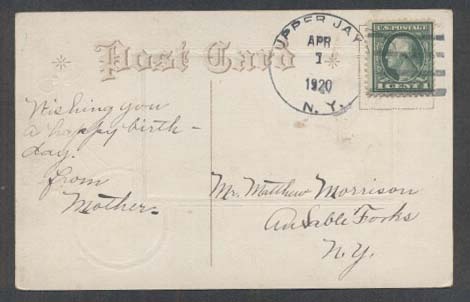 Post Card
UPPER JAY
APR
1
1920
N. Y.
U.S. POSTAGE
1 CENT 1
Wishing you
a happy birth-
day.
from
Mother.
Mr. Matthew Morrison
AuSable Forks
N.Y.